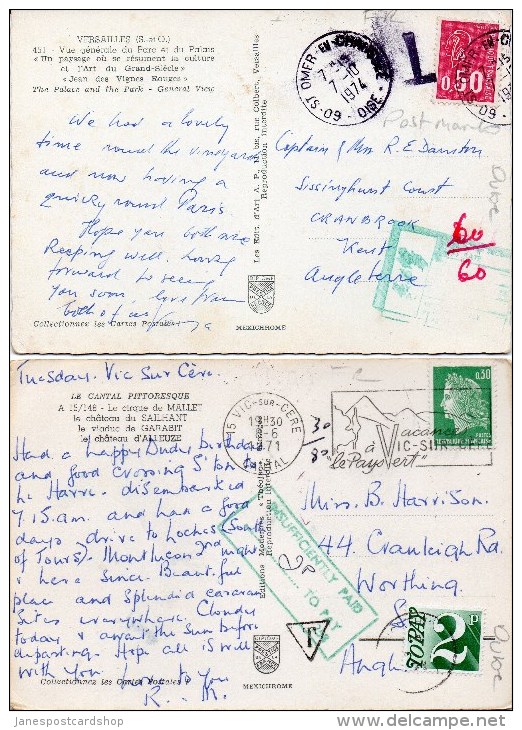 VERSAILLES (S.-et-O.)
451 - Vue générale du Parc et du Palais
« Un paysage où se résument la culture
et l'Art du Grand-Siècle »
« Jean des Vignes Rouges »
The Palace and the Park - General View
We had a lovely
time round the vineyards
and now having a
quick round Paris
Hope you both are
keeping well, looking
forward to seeing
you soon, love from
both of us
Collectionnez les Cartes Postales
MEXICHROME
Reproduction interdite
DIPLOME
PRESTIGE
60-ST OMER-EN-CHAUSSEE
7-10
1974
OISE
L
0,50
Post marks
Captain & Mrs R. E. Damston
Sissinghurst Court
CRANBROOK
Kent
Angleterre
60
60
Tuesday. Vic Sur Cère.
LE CANTAL PITTORESQUE
A 15/148 - Le cirque de MALLET
le château du SAILHANT
le viaduc de GARABIT
le château d'ALLEUZE
Had a happy birthday
and good crossing
Le Havre. disembarked
7.15 a.m. and had a good
days drive to Loches (South
of Tours). Montluçon 2nd night
& here since. Beautiful
place and splendid caravan
sites everywhere. Cloudy
today & await the sun before
departing. Hope all is well
with you. to you
R. M.
Collectionnez les Cartes Postales
MEXICHROME
Reproduction interdite
DIPLOME
PRESTIGE
15 VIC-SUR-CERE
13H30
-6
1971
CANTAL
Vacances
à VIC-SUR-CERE
"le Pays vert"
0,30
30
80
INSUFFICIENTLY PAID
TO PAY
2P
T
Miss. B. Harrison.
44. Cranleigh Rd.
Worthing
TO PAY
2P
janespostcardshop
www.delcampe.net